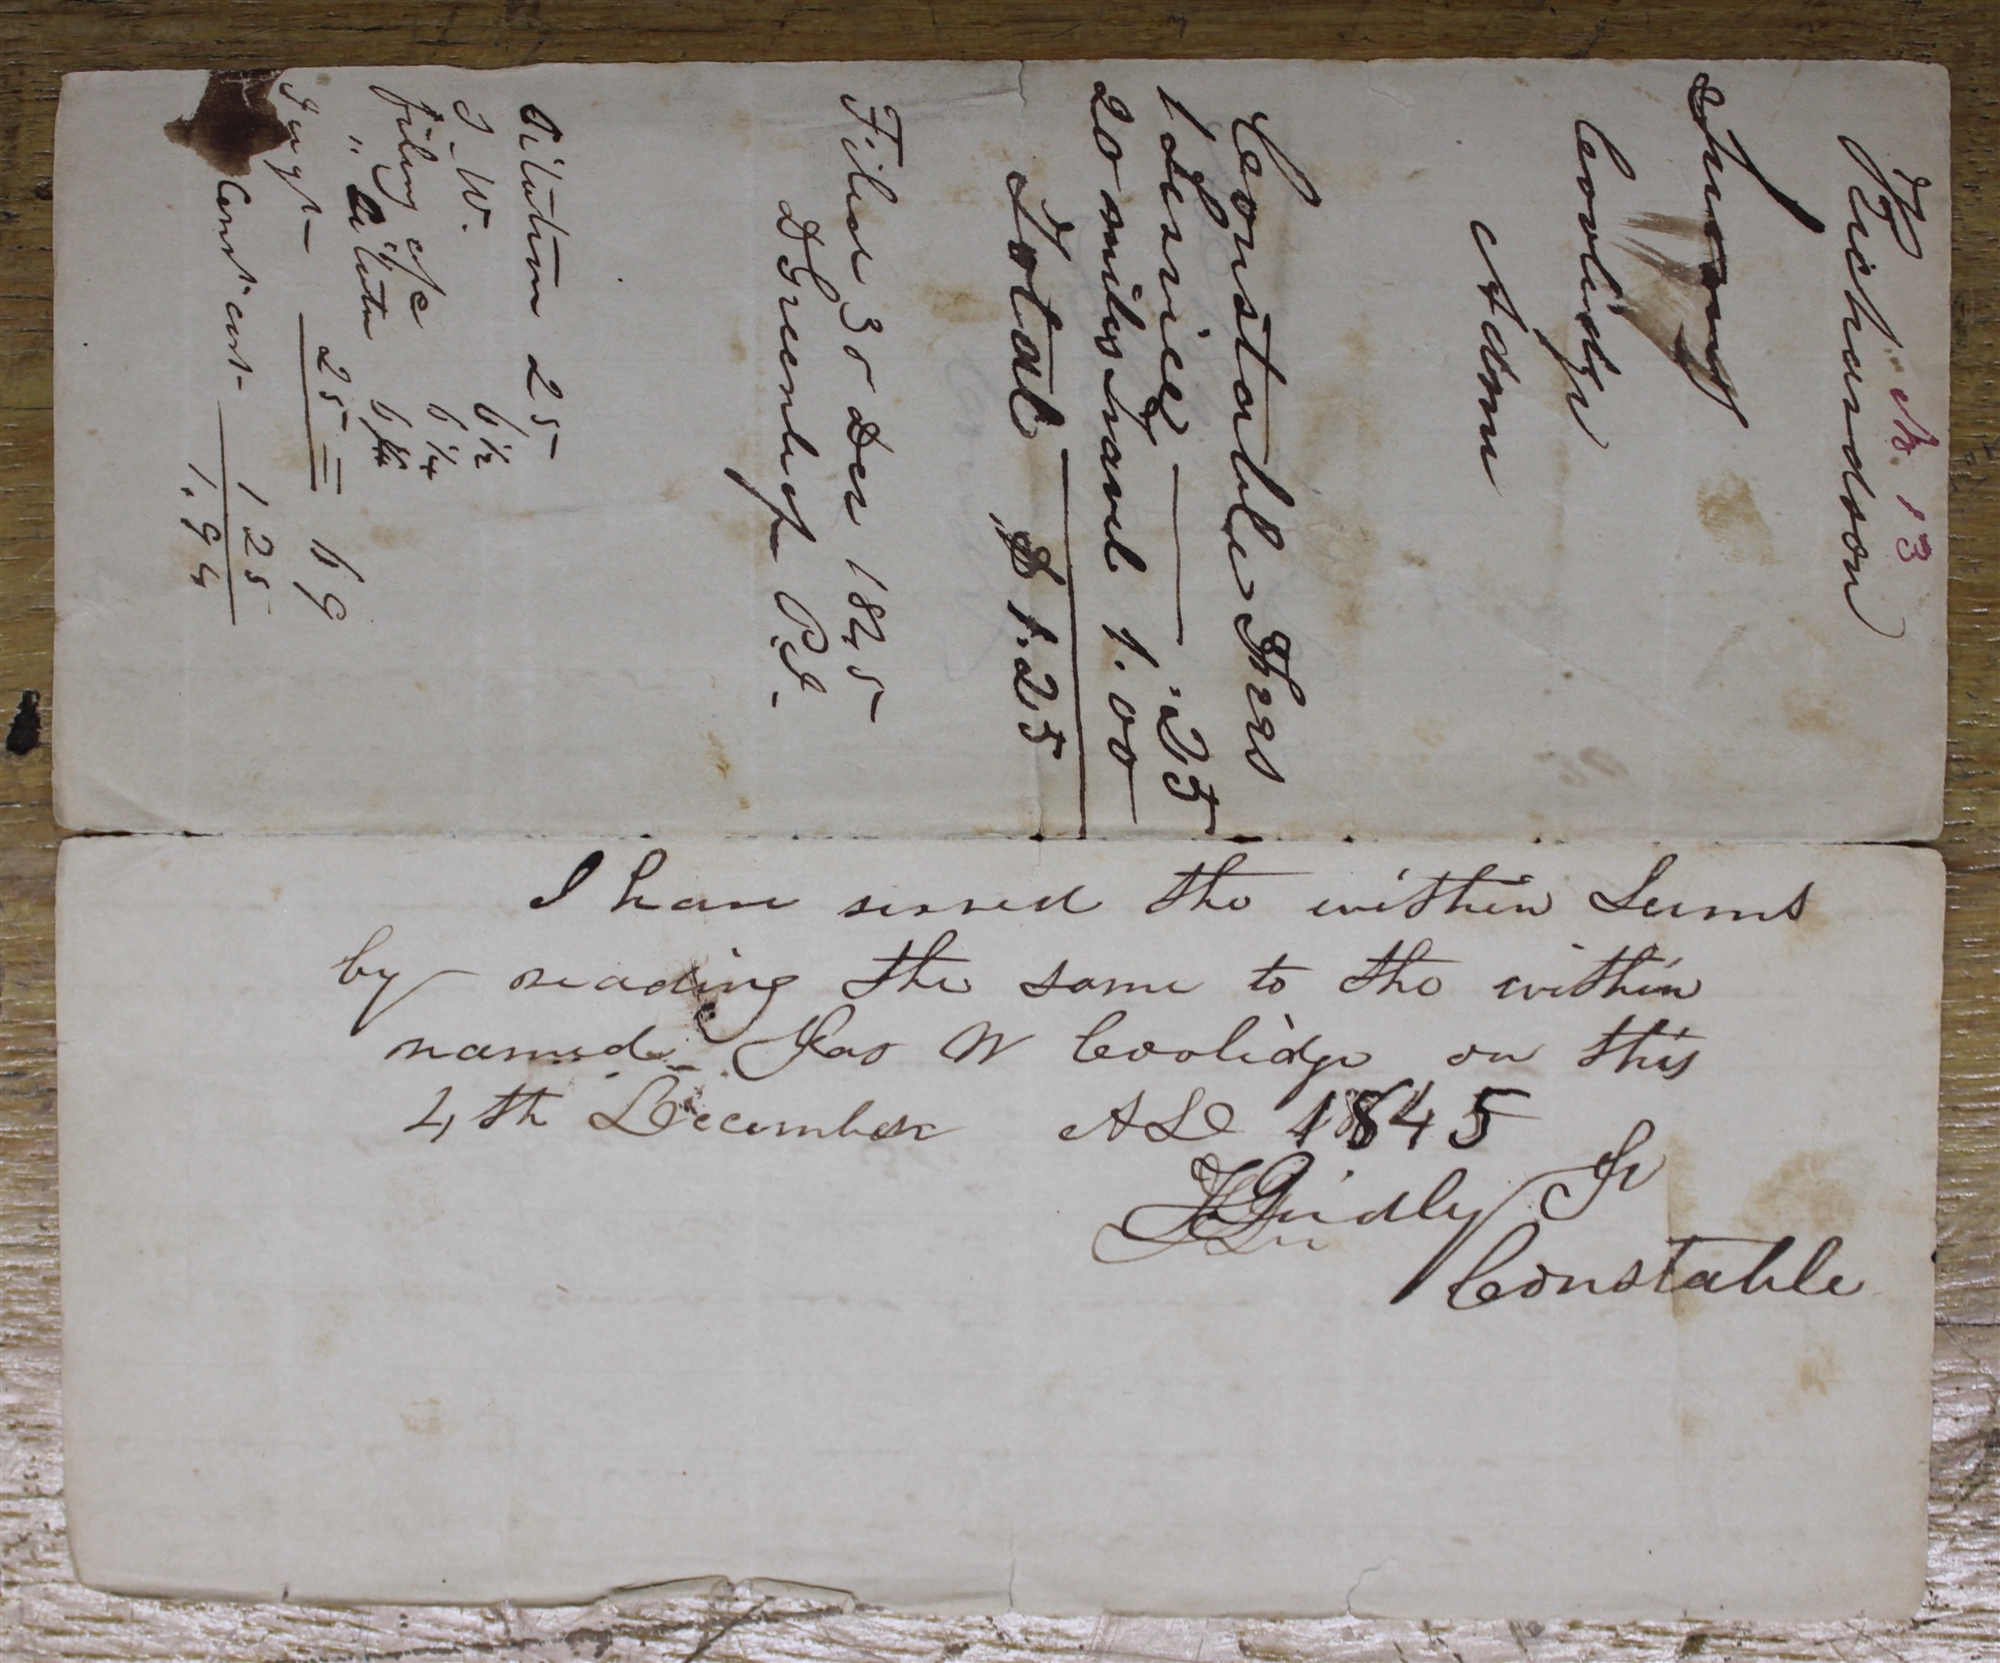 No. 13
Richardson
Summ
Coolidge
Adm
Constable Fees
1 Service .25
20 miles travel 1.00
Total $1.25
Filed 30 Dec 1845
D Greenleaf P.J.
Citation 25
J. W. 6 1/2
filing a/c 6 1/4
" Citation 6 1/4
Jugt 25 = 69
Const. cost 125
1.94
I have served the within Sums
by reading the same to the within
named Jas W Coolidge on this
4th December AD 1845
Gridly Jr
Constable